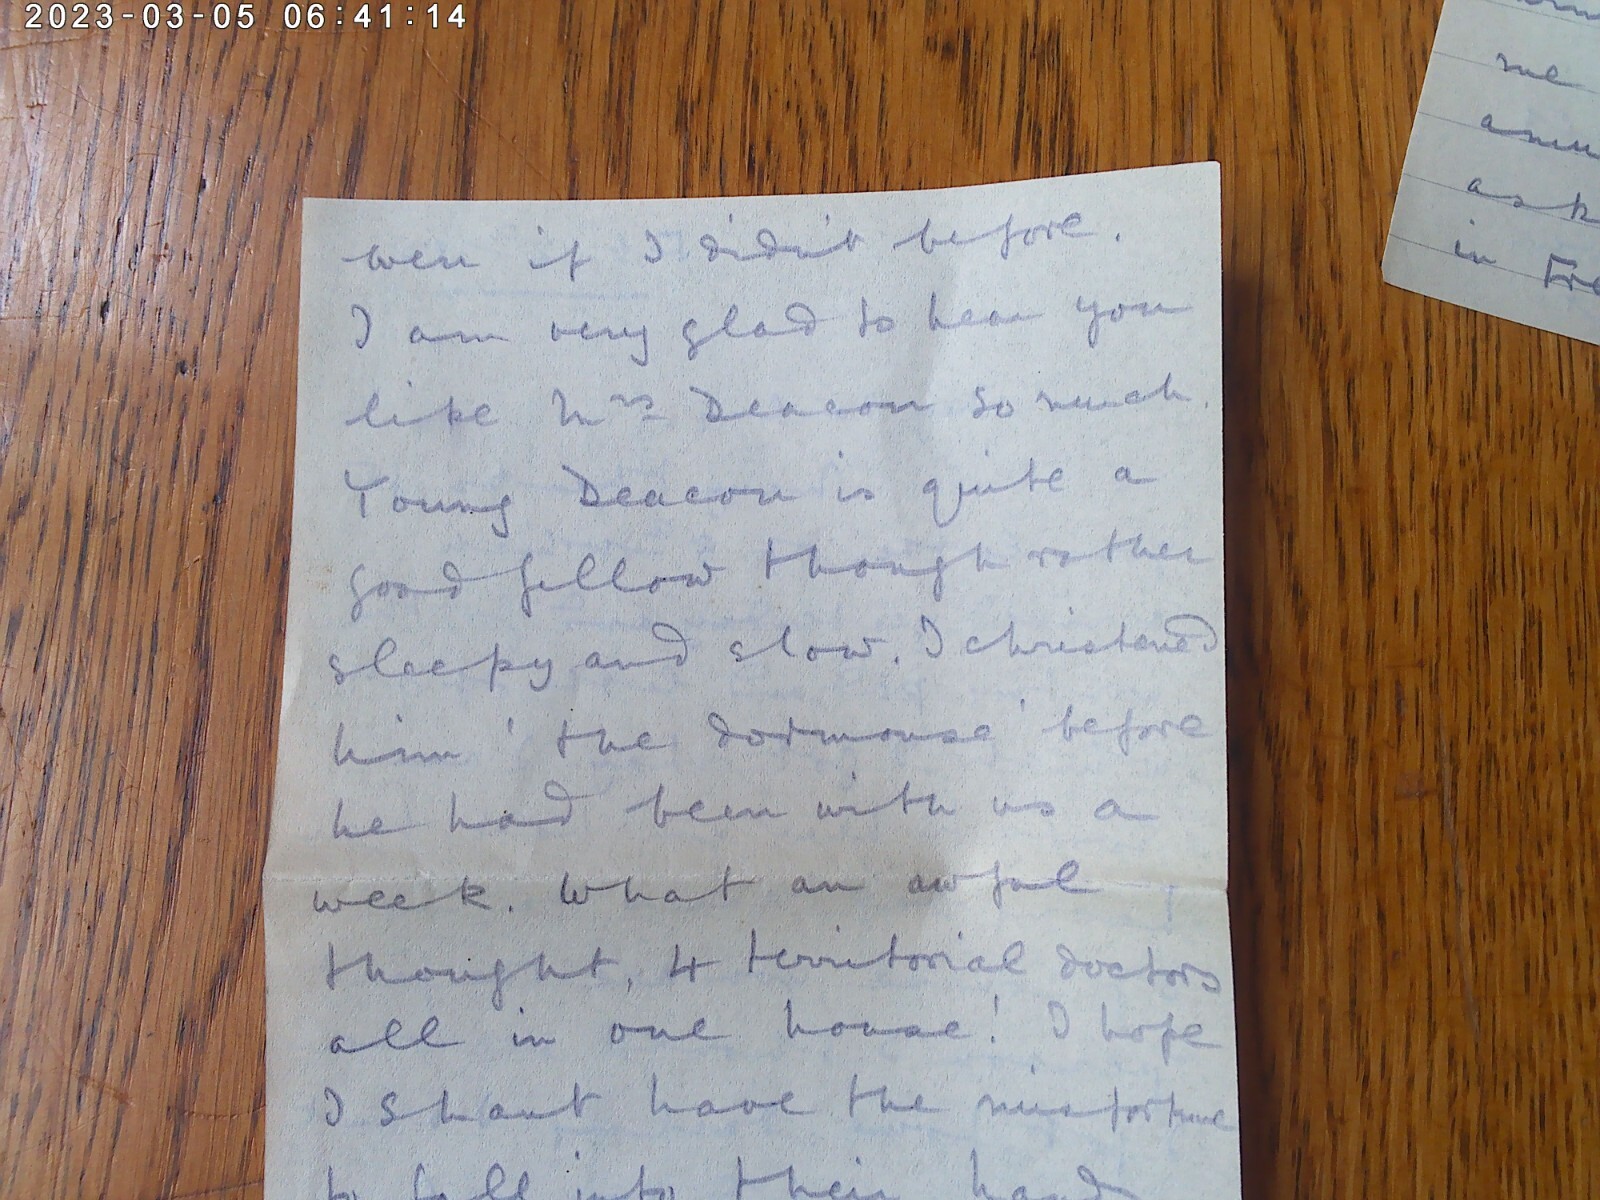 2023-03-05 06:41:14
me
in
well if I didn't before.
I am very glad to hear you
like Mrs Deacon so much.
Young Deacon is quite a
good fellow though rather
sleepy and slow. I christened
him 'the dormouse' before
he had been with us a
week. What an awful
thought, 4 territorial doctors
all in one house! I hope
I shant have the misfortune
to fall into their hand